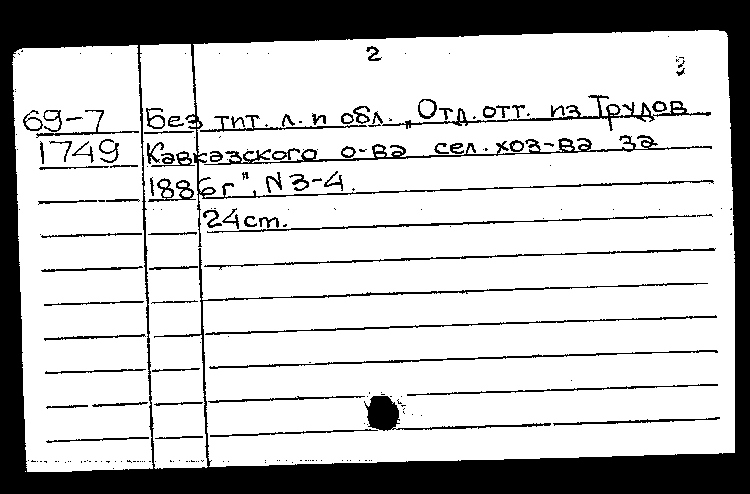 2
3
69-7 Без тит. л. и обл. „Отд. отт. из Трудов
1749 Кавказского о-ва сел. хоз-ва за
1886 г", N 3-4.
24 ст.